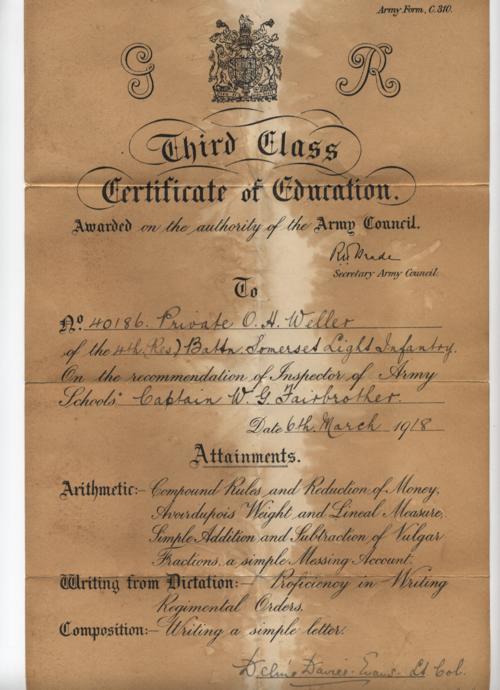 Army Form, C. 310.
G R
Third Class
Certificate of Education.
Awarded on the authority of the Army Council.
Secretary Army Council.
To
No. 40186. Private O. H. Weller
of the 4th (Res) Battn. Somerset Light Infantry.
On the recommendation of Inspector of Army
Schools" Captain W. G. Fairbrother.
Date 6th. March 1918
Attainments.
Arithmetic:- Compound Rules and Reduction of Money,
Avoirdupois Weight and Lineal Measure,
Simple Addition and Subtraction of Vulgar
Fractions, a simple Messing Account.
Writing from Dictation:- Proficiency in Writing
Regimental Orders.
Composition:- Writing a simple letter.
Davies-Evans. Lt Col.